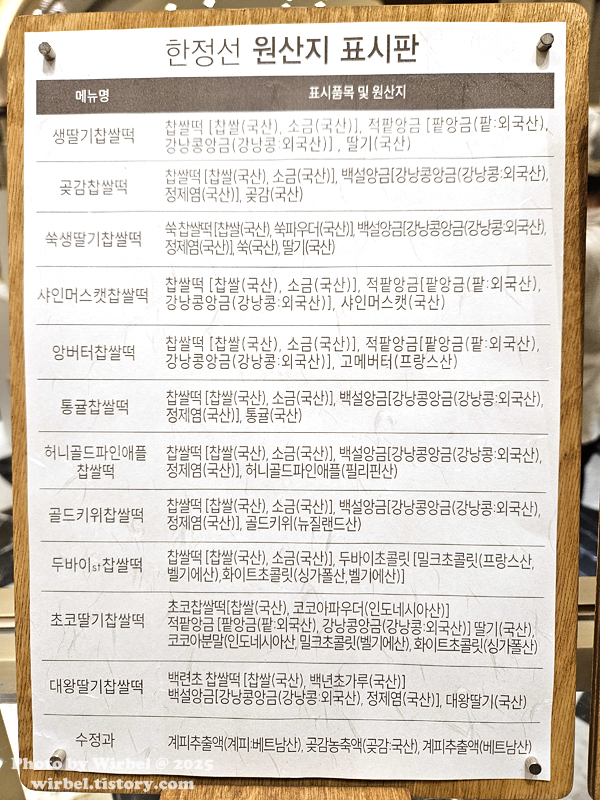 한정선 원산지 표시판
메뉴명 표시품목 및 원산지
생딸기찹쌀떡 찹쌀떡 [찹쌀(국산), 소금(국산)], 적팥앙금 [팥앙금(팥:외국산),
강낭콩앙금(강낭콩:외국산)] , 딸기(국산)
곶감찹쌀떡 찹쌀떡 [찹쌀(국산), 소금(국산)], 백설앙금[강낭콩앙금(강낭콩:외국산),
정제염(국산)], 곶감(국산)
쑥생딸기찹쌀떡 쑥찹쌀떡 [찹쌀(국산), 쑥파우더(국산)], 백설앙금[강낭콩앙금(강낭콩:외국산),
정제염(국산)], 쑥(국산), 딸기(국산)
샤인머스캣찹쌀떡 찹쌀떡 [찹쌀(국산), 소금(국산)], 적팥앙금[팥앙금(팥:외국산),
강낭콩앙금(강낭콩:외국산)], 샤인머스캣(국산)
앙버터찹쌀떡 찹쌀떡 [찹쌀(국산), 소금(국산)], 적팥앙금[팥앙금(팥:외국산),
강낭콩앙금(강낭콩:외국산)], 고메버터(프랑스산)
통귤찹쌀떡 찹쌀떡 [찹쌀(국산), 소금(국산)], 백설앙금[강낭콩앙금(강낭콩:외국산),
정제염(국산)], 통귤(국산)
허니골드파인애플
찹쌀떡
찹쌀떡 [찹쌀(국산), 소금(국산)], 백설앙금[강낭콩앙금(강낭콩:외국산),
정제염(국산)], 허니골드파인애플(필리핀산)
골드키위찹쌀떡 찹쌀떡 [찹쌀(국산), 소금(국산)], 백설앙금[강낭콩앙금(강낭콩:외국산),
정제염(국산)], 골드키위(뉴질랜드산)
두바이st찹쌀떡 찹쌀떡 [찹쌀(국산), 소금(국산)], 두바이초콜릿 [밀크초콜릿(프랑스산,
벨기에산),화이트초콜릿(싱가폴산,벨기에산)]
초코딸기찹쌀떡 초코찹쌀떡[찹쌀(국산), 코코아파우더(인도네시아산)]
적팥앙금 [팥앙금(팥:외국산), 강낭콩앙금(강낭콩:외국산)] 딸기(국산),
코코아분말(인도네시아산, 밀크초콜릿(벨기에산), 화이트초콜릿(싱가폴산)
대왕딸기찹쌀떡 백련초 찹쌀떡 [찹쌀(국산), 백년초가루(국산)]
백설앙금[강낭콩앙금(강낭콩:외국산, 정제염(국산)], 대왕딸기(국산)
수정과 계피추출액(계피:베트남산), 곶감농축액(곶감:국산), 계피추출액(베트남산)
Photo by Wirbel @ 2025
wirbel.tistory.com